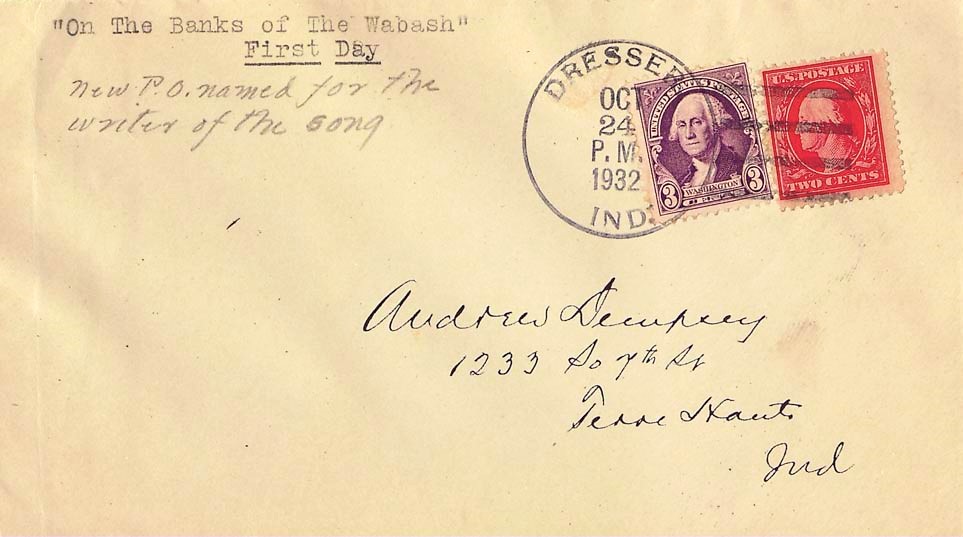 "On The Banks of The Wabash"
First Day
New P.O. named for the
writer of the song
DRESSER
OCT
24
P. M.
1932
IND.
UNITED STATES POSTAGE
3 WASHINGTON 3
U.S. POSTAGE
TWO CENTS
Andrew Dempsey
1233 So 7th St
Terre Haute
Ind